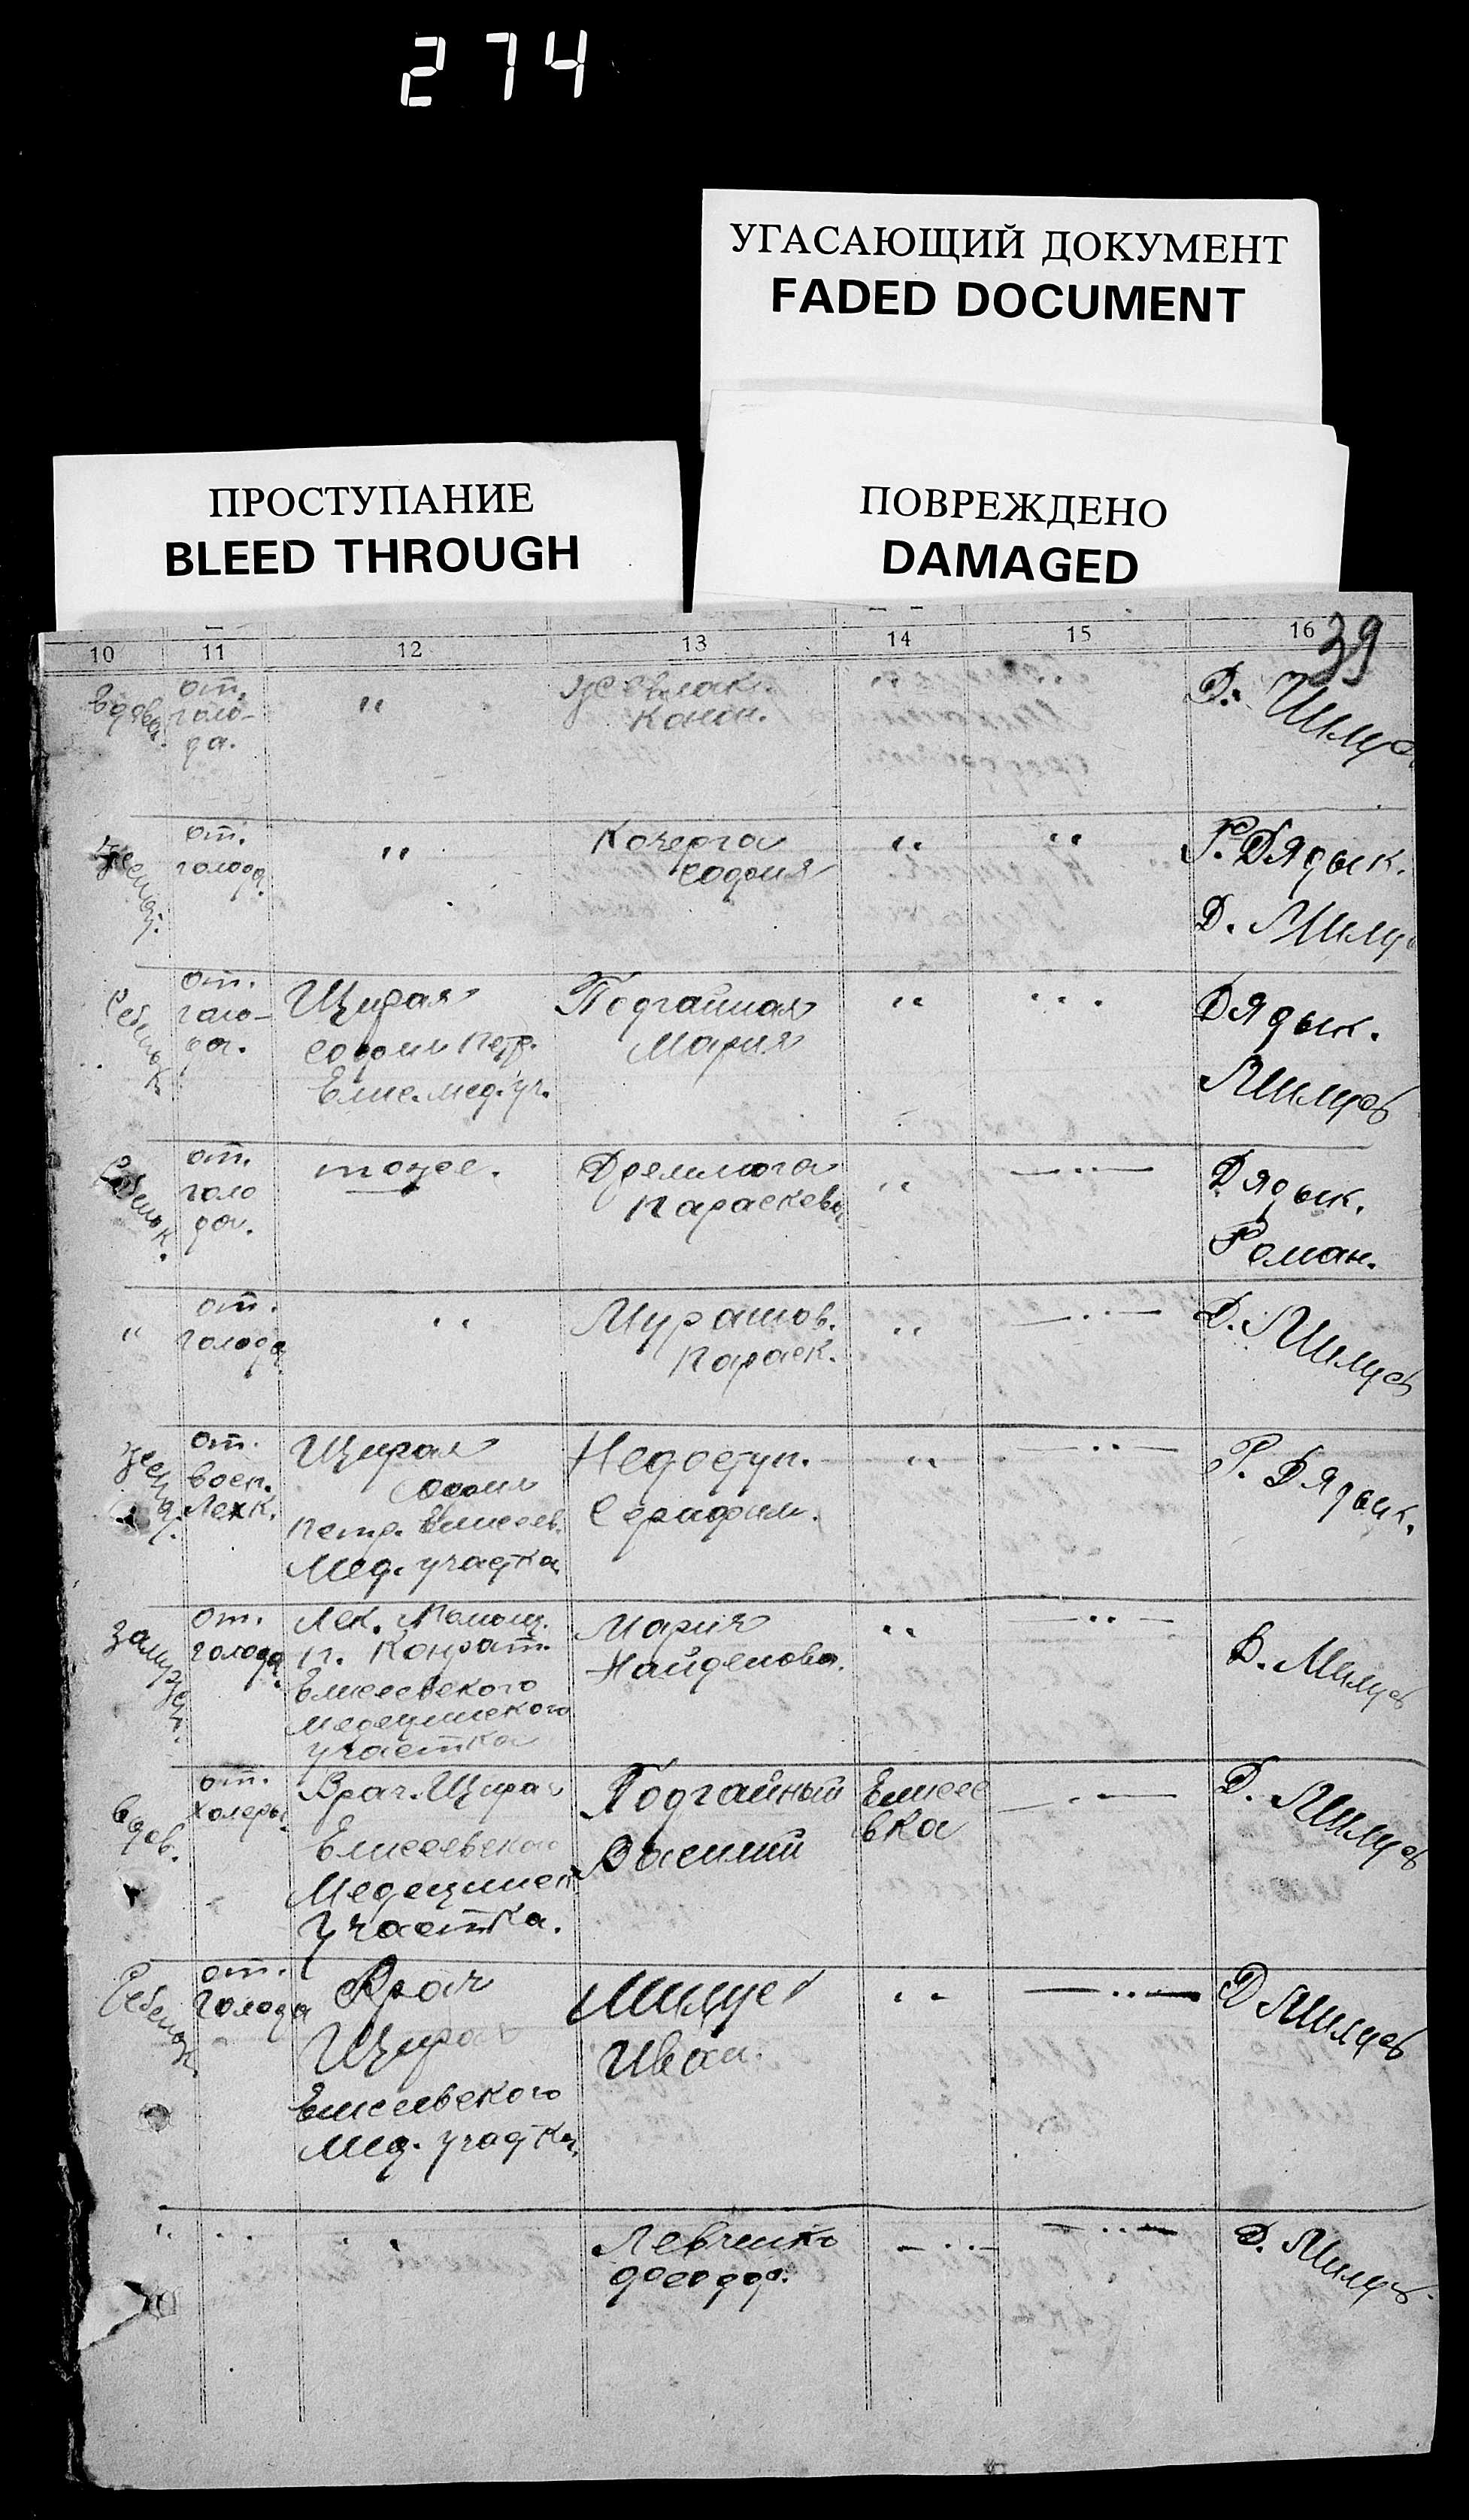 274
УГАСАЮЩИЙ ДОКУМЕНТ
FADED DOCUMENT
ПРОСТУПАНИЕ
BLEED THROUGH
ПОВРЕЖДЕНО
DAMAGED
10 11 12 13 14 15 16
39
вдова.
от.
голо-
да.
"
Конст.
Д.
от.
голода.
"
Кочерга
София
" "
Р. Дядык.
Д.
Ребенок.
от.
голо-
да.
Щирая
София Петр.
Елис. мед. уч.
Подгайная
Мария
" "
Дядык.
Ребенок.
от.
голо
да.
тоже.
Дремлюга
Параскева
" "
Дядык.
Роман.
"
от.
голода
"
Мурашов.
Параск.
" "
Д.
от.
восп.
Легк.
Щирая
София
Петр. Елисеев.
Мед. участка
Недоступ.
Серафим.
" "
Р. Дядык.
замуж.
от.
голода.
Лек. Помощ.
Елисеевского
медецинского
участка
Мария
Найденова.
" "
Д.
вдов.
от.
холеры.
Врач. Щирая
Елисеевского
Медецинск
Участка.
Подгайный
Василий
Елисее
вка
"
Д.
Ребенок.
от.
Голода
Врач
Щирая
Елисеевского
Мед. участка,
Иван.
" "
Д
" " "
Левченко
Феодор.
" "
Д.